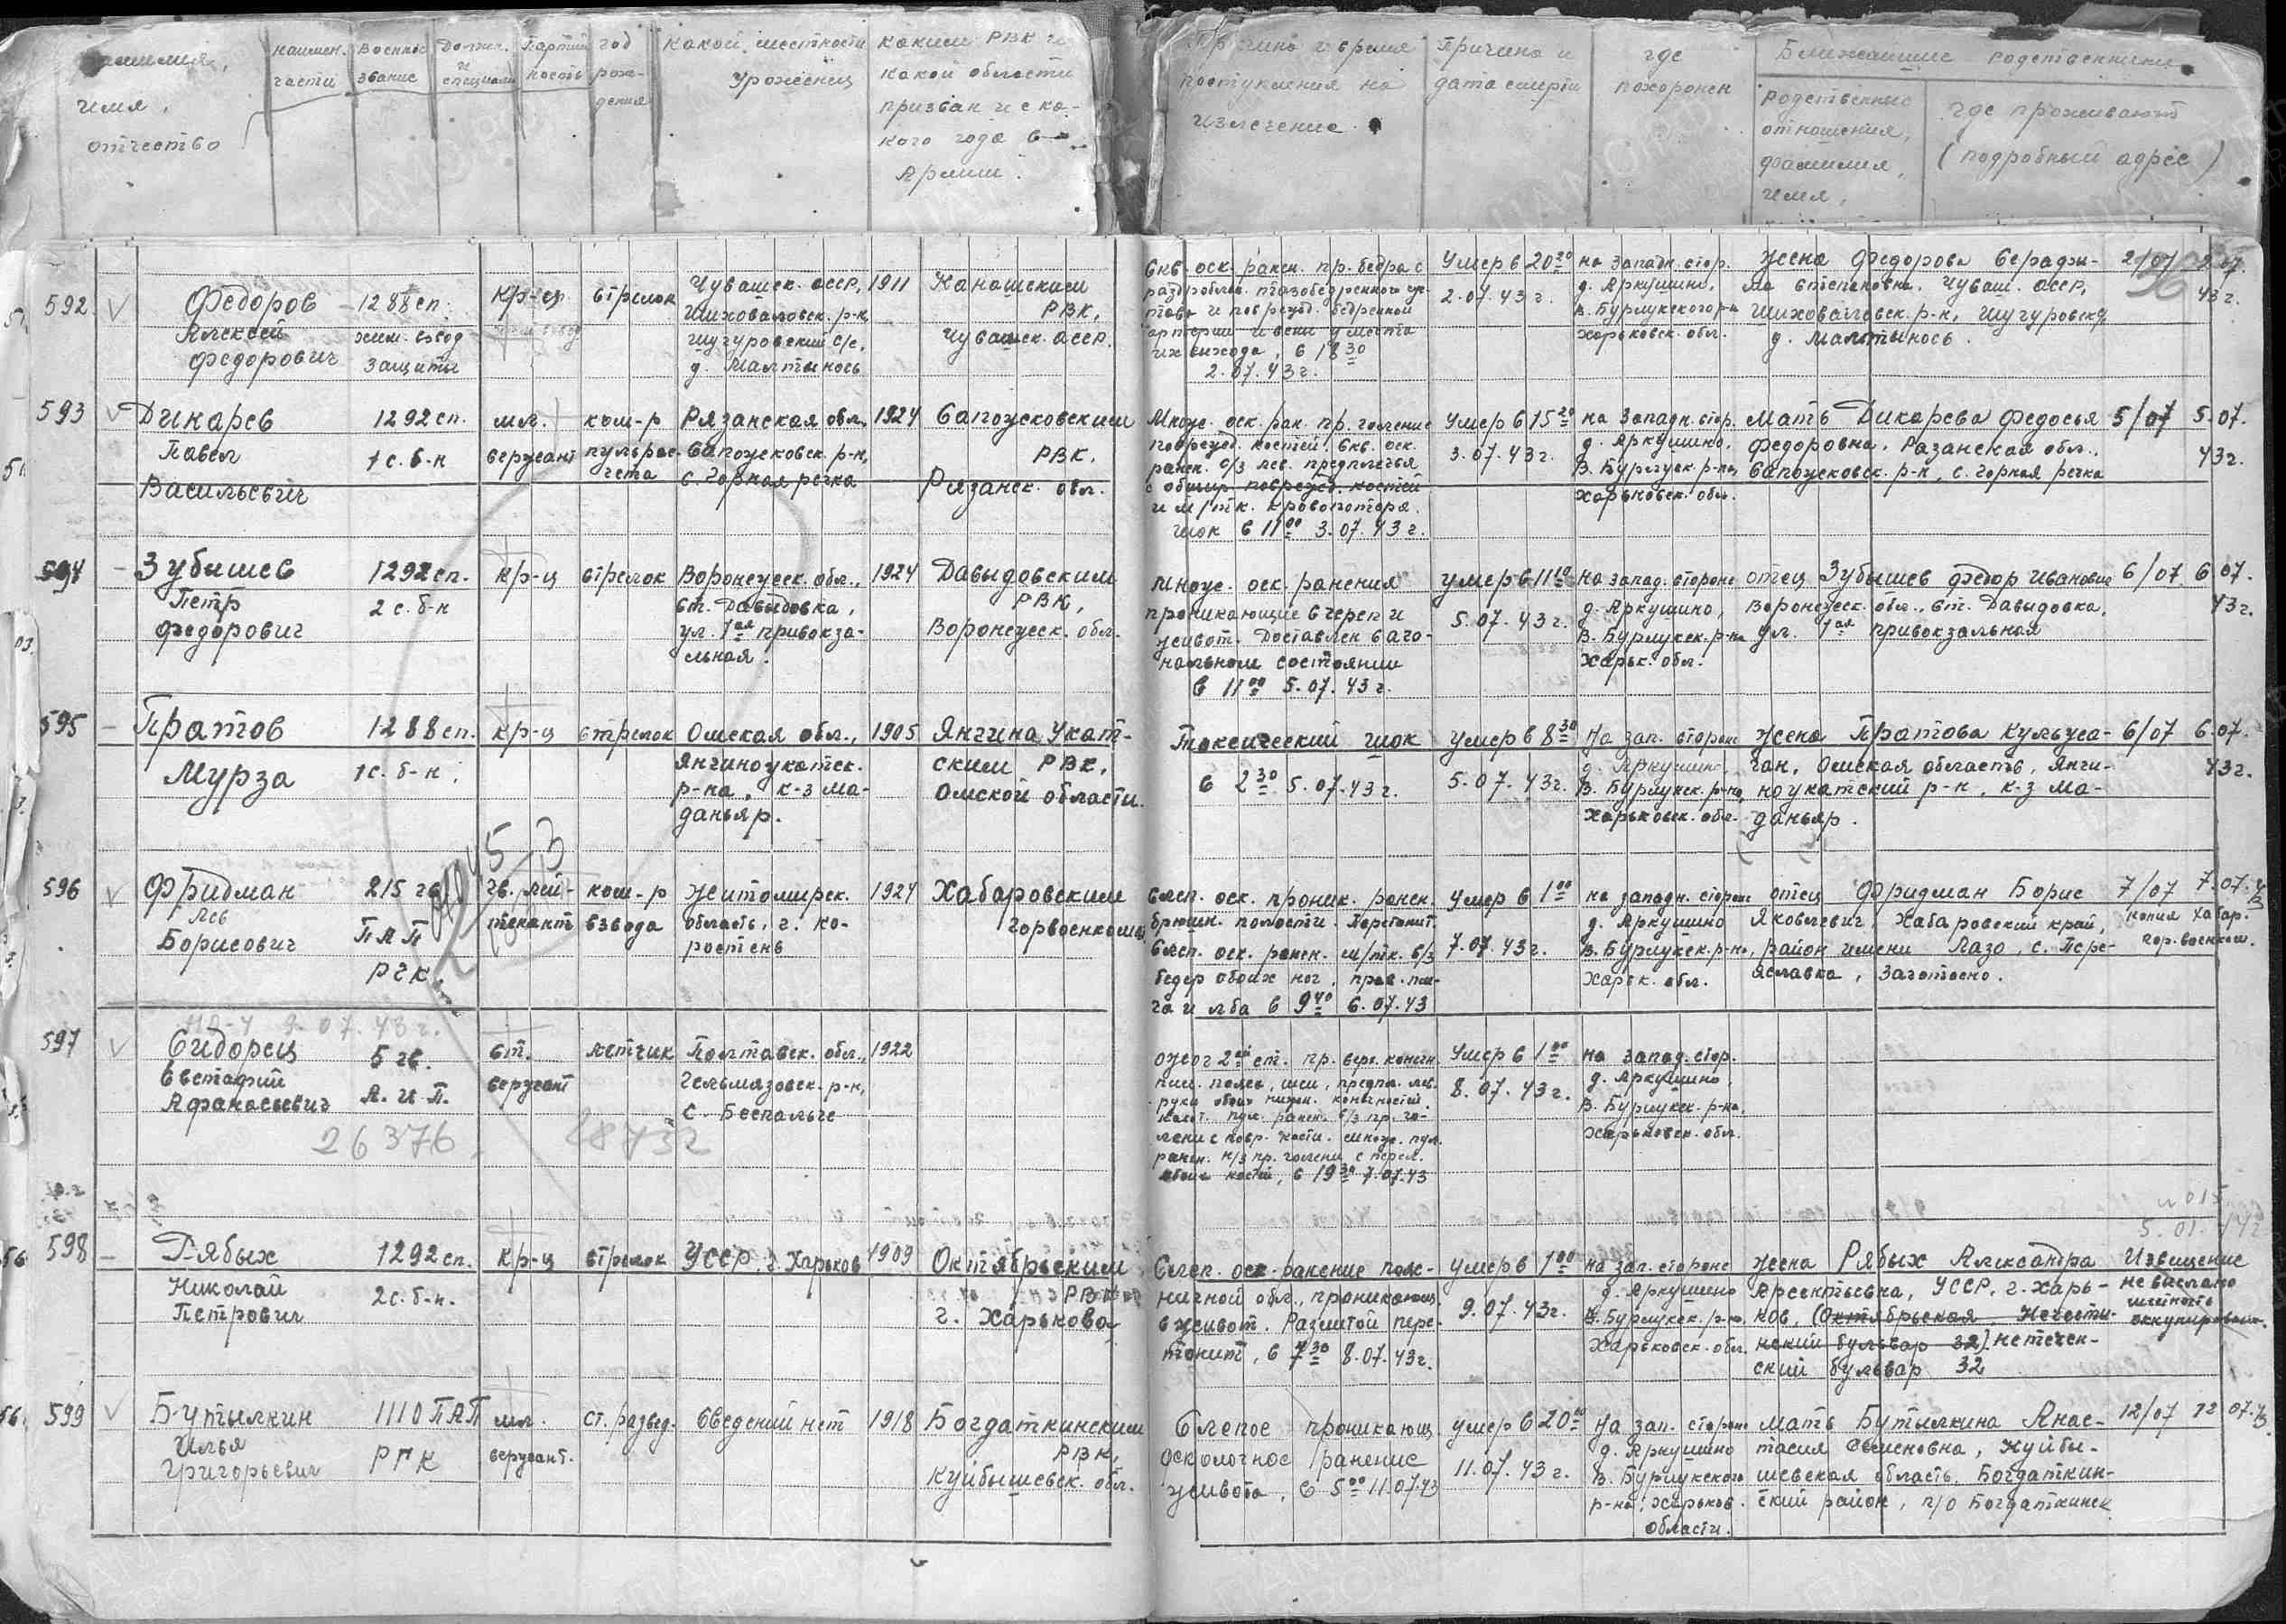 Фамилия, имя, отчество
наимен. части
Военное звание
Должн. и специальн.
Партийность
год рождения
Какой местности уроженец
Каким РВК и какой области призван и с какого года в Армии.
Причина и время поступления на излечение
Причина и дата смерти
где похоронен
Ближайшие родственники
родственные отношения, фамилия, имя,
где проживают (подробный адрес)
592
Федоров
Алексей
Федорович
1288 сп.
хим. взвод
защиты
кр-ец
стрелок
Чувашск. АССР,
Шихобаловск. р-н,
Шугуровский с/с,
д. Малтынось
1911
Канашским
РВК,
Чувашск. АССР.
раздроблен. тазобедренного су-
става и повречд. бедренной
артерии и вены у места
их выхода, в 18 30
2.07.43г.
Умер в 20 20
2.07.43г.
на западн. стор.
д. Аркушино,
В. Бурлукского р-н
Харьковск. обл.
Жена Федорова Серафи-
ма Степановна, Чуваш. АССР,
Шихобаловск. р-н, Шугуровск.
д. Малтынось.
2/07 2.07.
43г.
593
Дикарев
Павел
Васильевич
1292 сп.
1 с. б-н
мл.
сержант
ком-р
пульрас-
чета
Рязанская обл,
Сапожковск. р-н,
с. Горная речка
1924
Сапожковским
РВК,
Рязанск. обл.
Множ. оск. ран. пр. голени с
повреж. костей. Скв. оск.
ранен. с/з лев. предплечья
с обшир. поврежд. костей
и м/тк. Кровопотеря.
Шок в 11 00 3.07.43г.
умер в 15 20
3.07.43г.
на западн. стор.
д. Аркушино,
В. Бурлукск. р-на
Харьковск. обл.
мать Дикарева Федосья
Федоровна, Рязанская обл.,
Сапожковск. р-н, с. Горная речка
5/07 5.07.
43г.
594
Зубышев
Петр
Федорович
1292 сп.
2 с. б-н
кр-ц
стрелок
Воронежск. обл.,
ст. Давыдовка,
ул. 1ая привокза-
льная.
1924
Давыдовским
РВК,
Воронежск. обл.
Множ. оск. ранения
проникающие в череп и
живот. Доставлен в аго-
нальном состоянии
в 11 00 5.07.43г.
умер в 11 10
5.07.43г.
на запад. стороне
д. Аркушино,
В. Бурлукск. р-на
Харьк. обл.
отец Зубышев Федор Иванович
Воронежск. обл., ст. Давыдовка,
ул. 1ая привокзальная
6/07 6.07.
43г.
595
Пратов
Мурза
1288 сп.
1 с. б-н.
кр-ц
стрелок
Омская обл.,
Янгиноукатск.
р-на, к-з Ма-
даньяр.
1905
Янгина Укат-
ским РВК,
Омской области.
Токсический шок
в 2 30 5.07.43г.
умер в 8 30
5.07.43г.
На зап. стороне
д. Аркушино,
В. Бурлукск. р-на,
Харьковск. обл.
жена Пратова Кульуса-
ган, Омская область, Янги-
ноукатский р-н, к-з Ма-
даньяр.
6/07 6.07.
43г.
596
Фридман
Лев
Борисович
215 гв.
ПАП
РГК
гв. лей-
тенант
ком-р
взвода
Житомирск.
область, г. Ко-
ростень
1924
Хабаровским
горвоенкома
Слеп. оск. проник. ранен.
брюшн. полости. Перетонит.
Слеп. оск. ранен. м/тк. с/з
бедер обоих ног,
и лба в 9 40 6.07.43
Умер в 1 00
7.07.43г.
на западн. стороне
д. Аркушино
В. Бурлукск. р-на,
Харьк. обл.
отец Фридман Борис
Яковлевич, Хабаровский край,
район имени Лазо, с. Пере-
яславка, Заготсено.
7/07 7.07.43
копия Хабар.
гор. военком.
9.07.43г.
597
Сидорец
Евстафий
Афанасьевич
5 гв.
А.И.П.
ст.
сержант
летчик
Полтавск. обл.,
Гельмязовск. р-н,
с. Беспальче
1922
26376
28732
ожог 2ой ст. пр. верх. конечн.
руки обоих нижн. конечностей.
лени с повр. кости. множ. пул.
ранен. н/з пр. голени с перел.
обоих костей, в 19 30 7.07.43
Умер в 1 00
8.07.43г.
на запад. стор.
д. Аркушино,
В. Бурлукск. р-на,
Харьковск. обл.
598
Рябых
Николай
Петрович
1292 сп.
2 с. б-н.
кр-ц
стрелок
УССР, г. Харьков
1909
Октябрьским
РВК
г. Харькова
Слеп. оск. ранение пояс-
ничной обл., проникающ.
в живот. Разлитой пере-
тонит, в 7 30 8.07.43г.
умер в 1 00
9.07.43г.
на зап. стороне
д. Аркушино
В. Бурлукск. р-на
Харьковск. обл.
жена Рябых Александра
Арсентьевна, УССР, г. Харь-
ков, (Октябрьская, Нечети-
нский бульвар 32) нетечен-
ский бульвар 32
5.01.44г
Извещение
не выслано
местность
оккупирована.
599
Бутылкин
Илья
Григорьевич
1110 ПАП
РГК
мл.
сержант.
ст. развед.
Сведений нет
1918
Богдаткинским
РВК,
Куйбышевск. обл.
Слепое проникающ.
осколочное ранение
живота, в 5 00 11.07.43
умер в 20 00
11.07.43г.
На зап. стороне
д. Аркушино
В. Бурлукского
р-на, Харьков.
области.
Мать Бутылкина Анас-
тасия Семеновна, Куйбы-
шевская область, Богдаткин-
ский район, п/о Богдаткинск
12/07 12.07.43